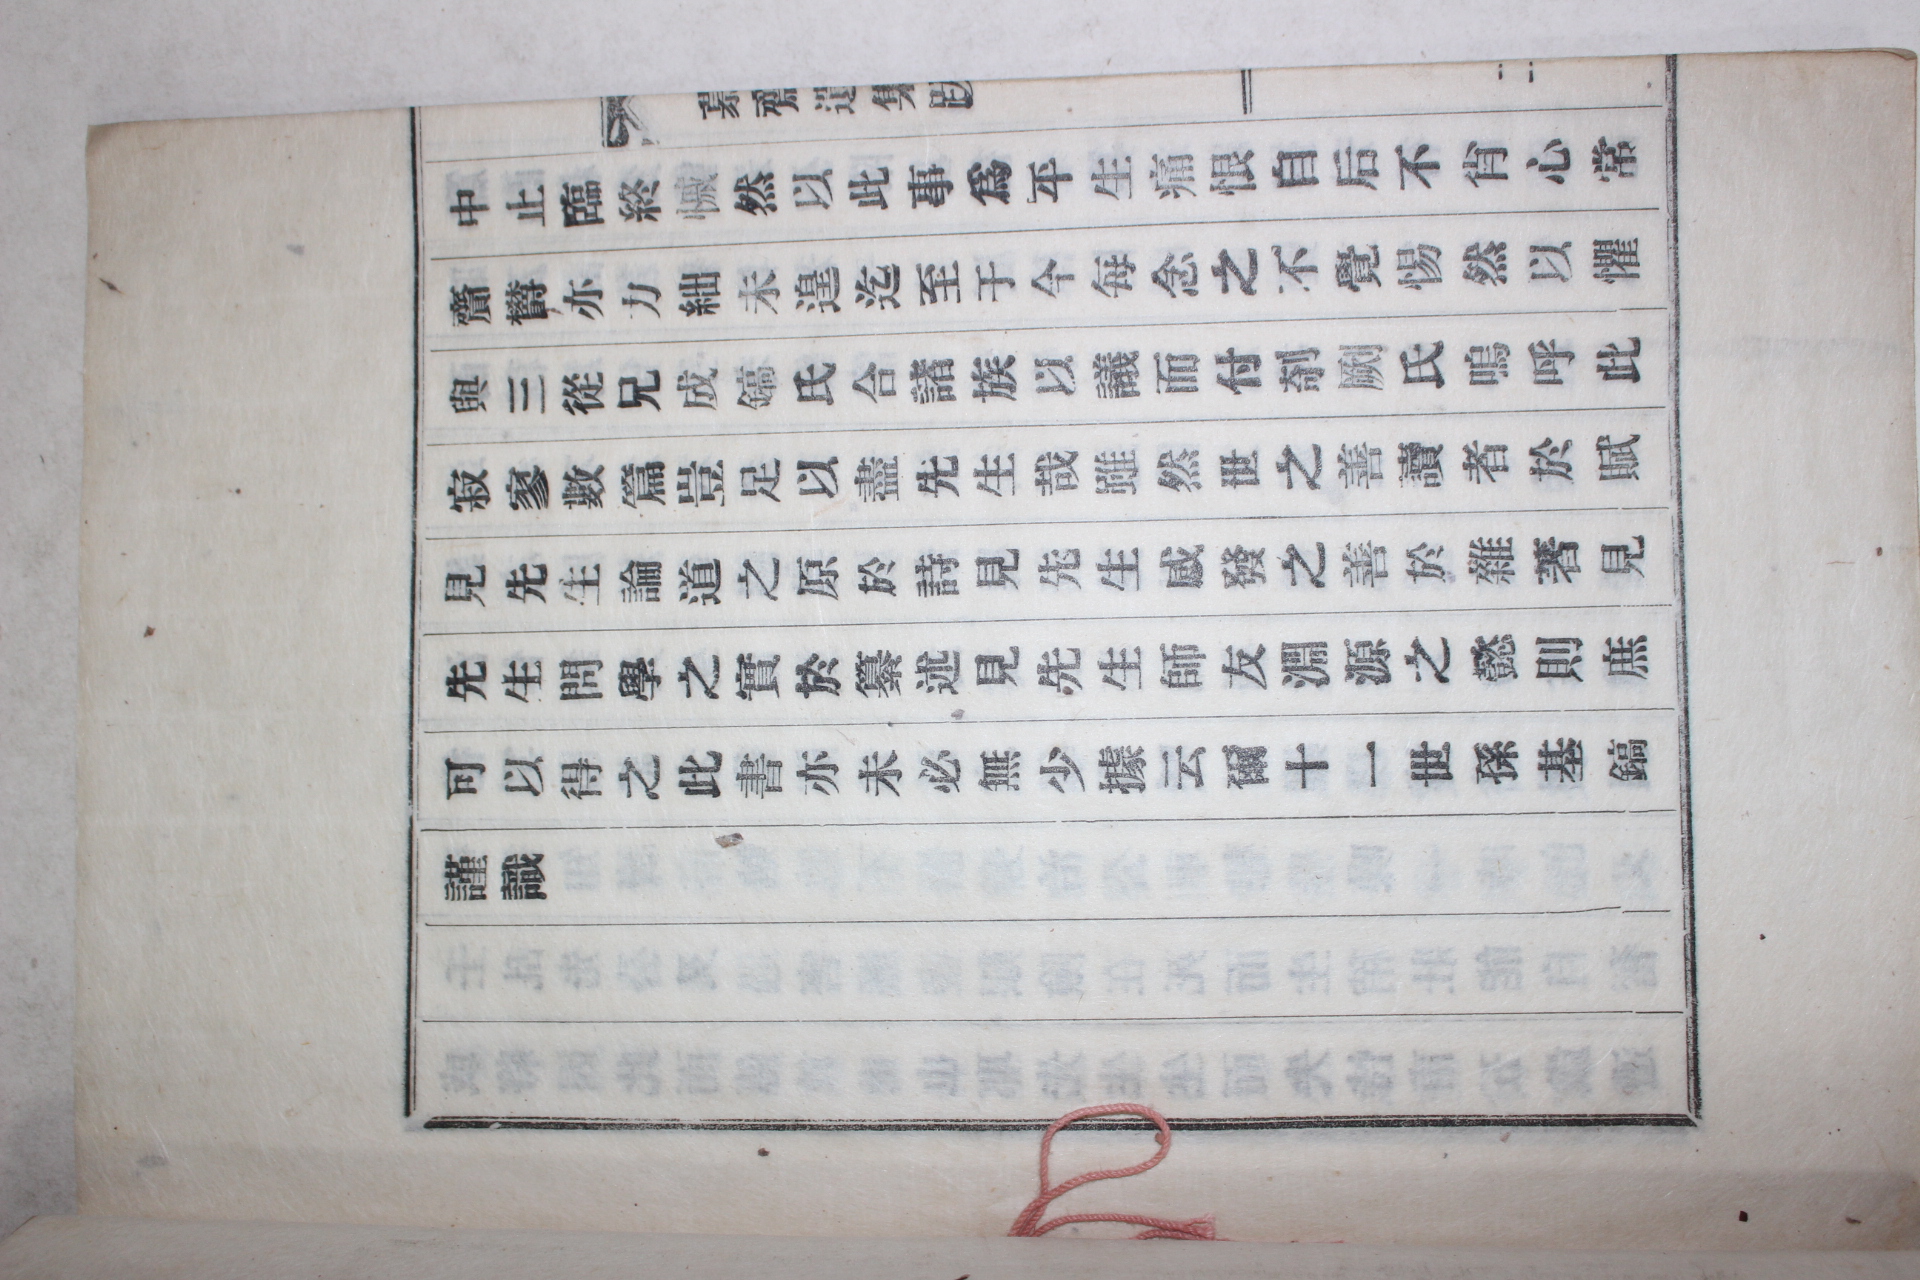 慕齋遺集跋
二
中止臨終慽然以此事爲平生痛恨自后不肖心常
齎欝亦力絀未遑迄至于今每念之不覺惕然以懼
與三從兄成鎬氏合諸族以議而付剞劂氏嗚呼此
寂寥數篇豈足以盡先生哉雖然世之善讀者於賦
見先生論道之原於詩見先生感發之善於雜著見
先生問學之實於纂述見先生師友淵源之懿則庶
可以得之此書亦未必無少據云爾十一世孫基鎬
謹識